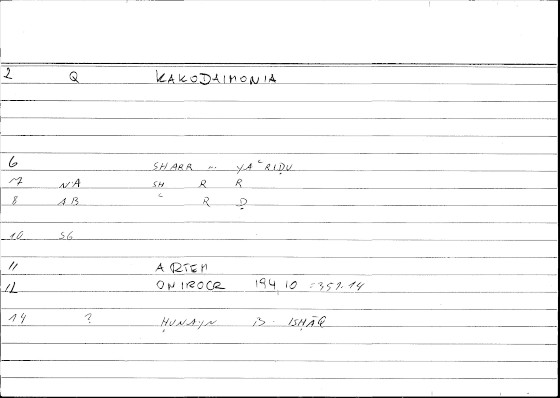 2 Q KAKODAIMONIA
6 SHARR ... YAʿRIḌU
7 NA SH R R
8 AB ʿ R Ḍ
10 SG
11 ARTEM
12 ONIROCR 194,10 = 351.14
14 ? ḤUNAYN B. ISḤĀQ